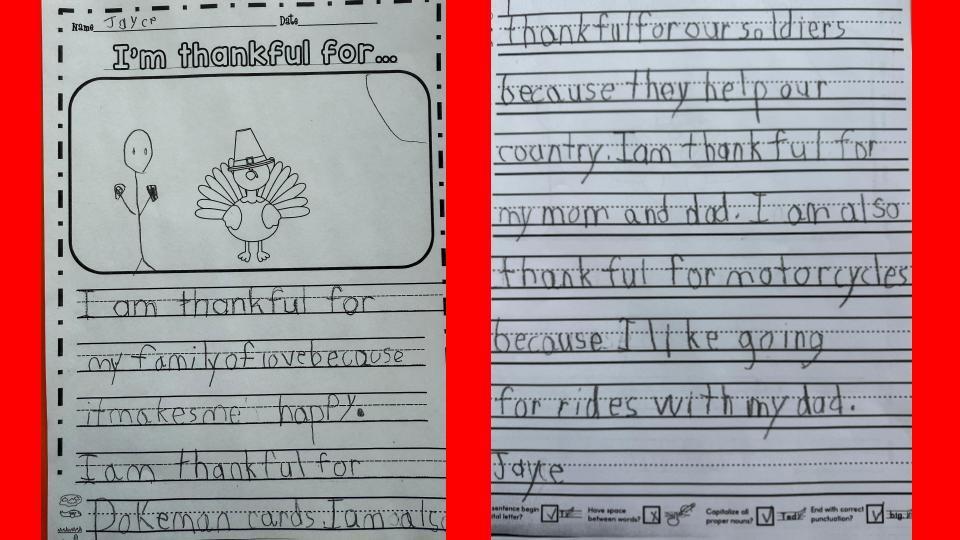 Name Jayce Date
I'm thankful for...
I am thankful for
my family of love because
it makes me happy.
I am thankful for
Pokeman cards. I am also
thankful for our soldiers
because they help our
country. I am thankful for
my mom and dad. I am also
thankful for motorcycles
because I like going
for rides with my dad.
Jayce
sentence begin Have space Capitalize all End with correct
tal letter? between words? proper nouns? punctuation?